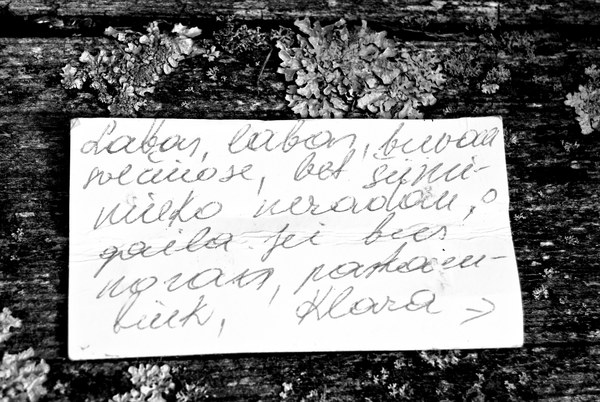 Labas, labas, buvau
svečiuose, bet šeimi-
ninko neradau, o
gaila jei bus
noras, paskam-
bink, Klara →